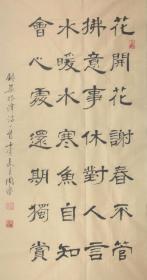 花開花謝春不管
拂意事休對人言
水暖水寒魚自知
會心處還期獨賞